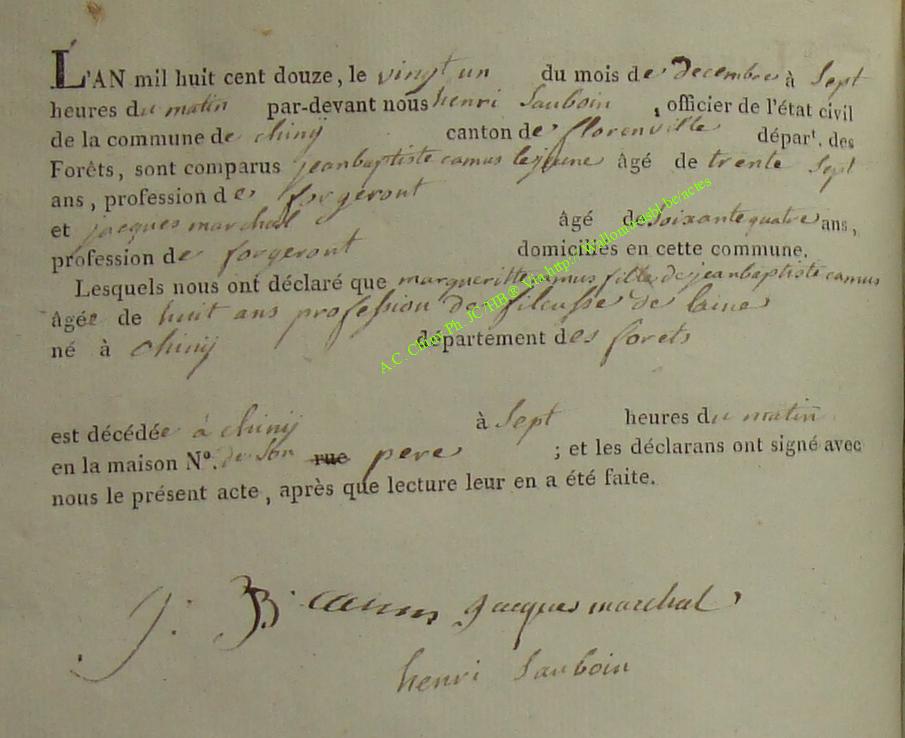 L'AN mil huit cent douze, le vingt un du mois de Decembre à Sept
heures du matin par-devant nous henri Sauboin, officier de l'état civil
de la commune de chinÿ canton de florenville départ. des
Forêts, sont comparus jeanbaptiste camus lejeune âgé de trente Sept
ans, profession de forgeront
et jacques marchal âgé de Soixante quatre ans,
profession de forgeront domiciliés en cette commune.
Lesquels nous ont déclaré que margueritte camus fille de jeanbaptiste camus
âgée de huit ans profession de fileusse de laine
né à chinÿ département des forets
est décédée à chinÿ à Sept heures du matin
en la maison N°. de Son rue pere ; et les déclarans ont signé avec
nous le présent acte, après que lecture leur en a été faite.
J. B. camus jacques marchal
henri Sauboin
A.C. Chiny Ph. JC/HB® Via http://
be/actes